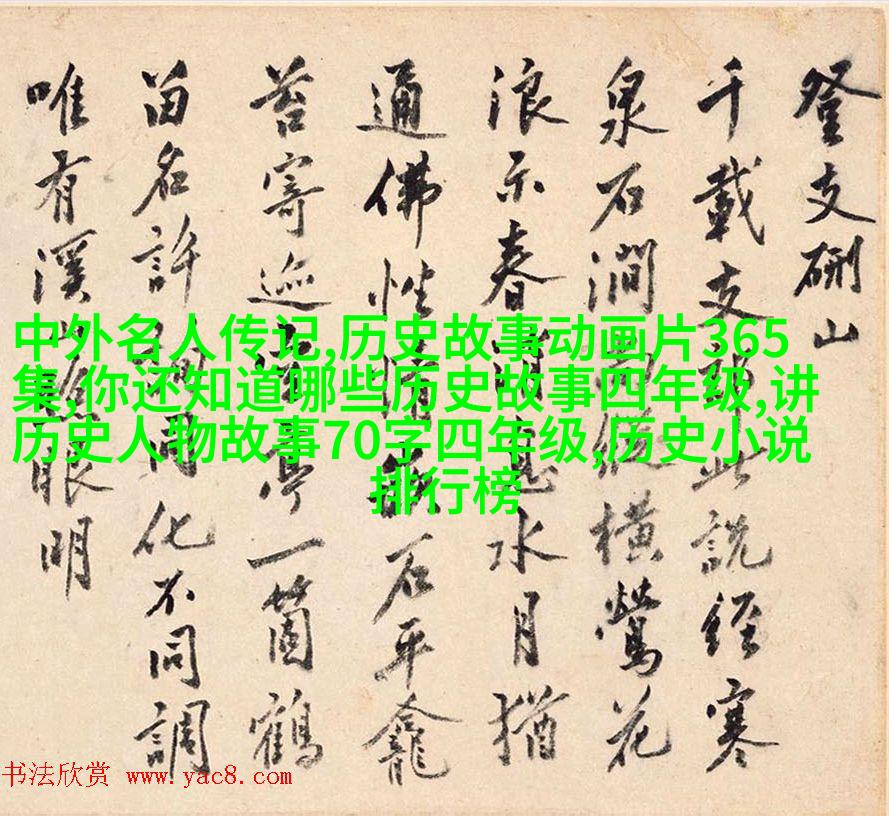 登支硎山
千載支此說經寒
泉石澗縱橫鶯花
浪示春水月猶
通佛性石平龕
苔寄巡亭一箇鶴
留名許同化不同調
唯有溪山眼明
中外名人传记,历史故事动画片365
集,你还知道哪些历史故事四年级,讲
历史人物故事70字四年级,历史小说
排行榜
书法欣赏 www.yac8.com